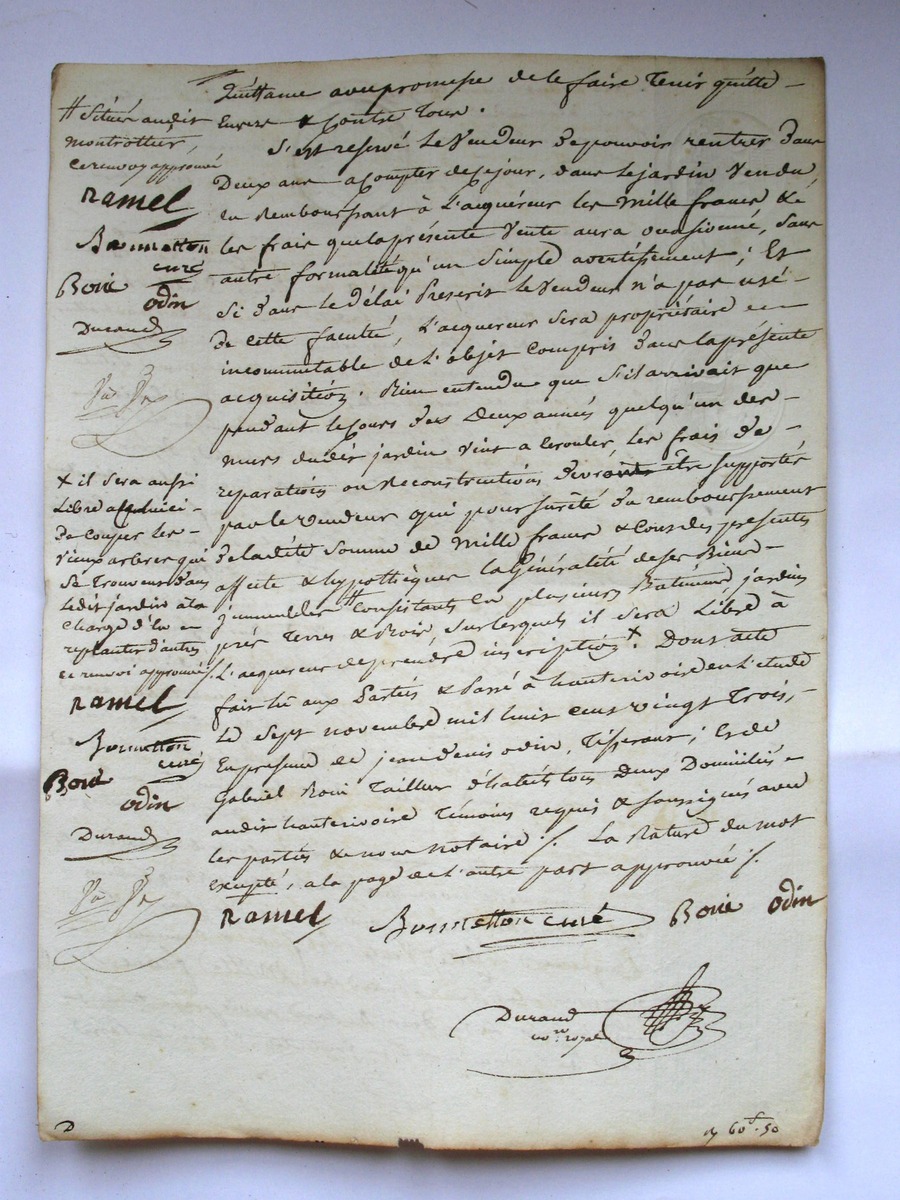 quittance avec promesse de le faire tenir quitte
Envers & Contre tous.
S'est reservé le Vendeur de pouvoir rentrer dans
Deux ans a Compter de ce jour, dans le jardin Vendu
en Remboursant à L'acquéreur les Mille francs & é
les frais que la présente Vente aura occasionné, Sans
autre formalité qu'un Simple avertissement; Et
Si dans le délai Prescrit le Vendeur n'a pas usé
De cette faculté, L'acquereur Sera propriétaire
incommutable de L'objet Compris dans la présente
acquisition. Bien entendu que S'il arrivait que
pendant le Cours des Deux années quelqu'un des
murs dudit jardin Vint a Crouler, les frais de
reparations ou Reconstructions devront être Supportés
par le Vendeur qui pour Sureté du remboursement
de ladite Somme de Mille francs & Cous des presentes
affecte & hypothèque la Généralité de ses Biens
immeubles # Consistants en plusieurs Batiments jardins
prés Terres & Bois, Sur lesquels il Sera Libre à
L'acquereur de prendre inscription +. Dont acte
fait lu aux Parties & Passé à hauterivoire en L'etude
Le Sept novembre mil huit Cent vingt Trois,
En presence de jean denis odin, Tisserant; Et de
Gabriel Boui Tailleur d'habits tous Deux Domiciliés
audit hauterivoire Témoins requis & Soussignés avec
les parties & nous notaire ./. La Rature du mot
Excepté, a la page de L'autre part approuvée ./.
ramel Bonnetton curé Boüe odin
Durand
no.re royal
# Situés audit
Montrottier,
ce renvoy approuvé
ramel
Bonnetton
curé
Boüe odin
Durand
+ il Sera aussi
Libre a Celui ci
De Couper les
Vieux arbres qui
Se Trouvent dans
Ledit jardin à la
Charge d'en
replanter d'autres
ce renvoi approuvé ./.
ramel
Bonnetton
curé
Boüe
odin
Durand
60f.50